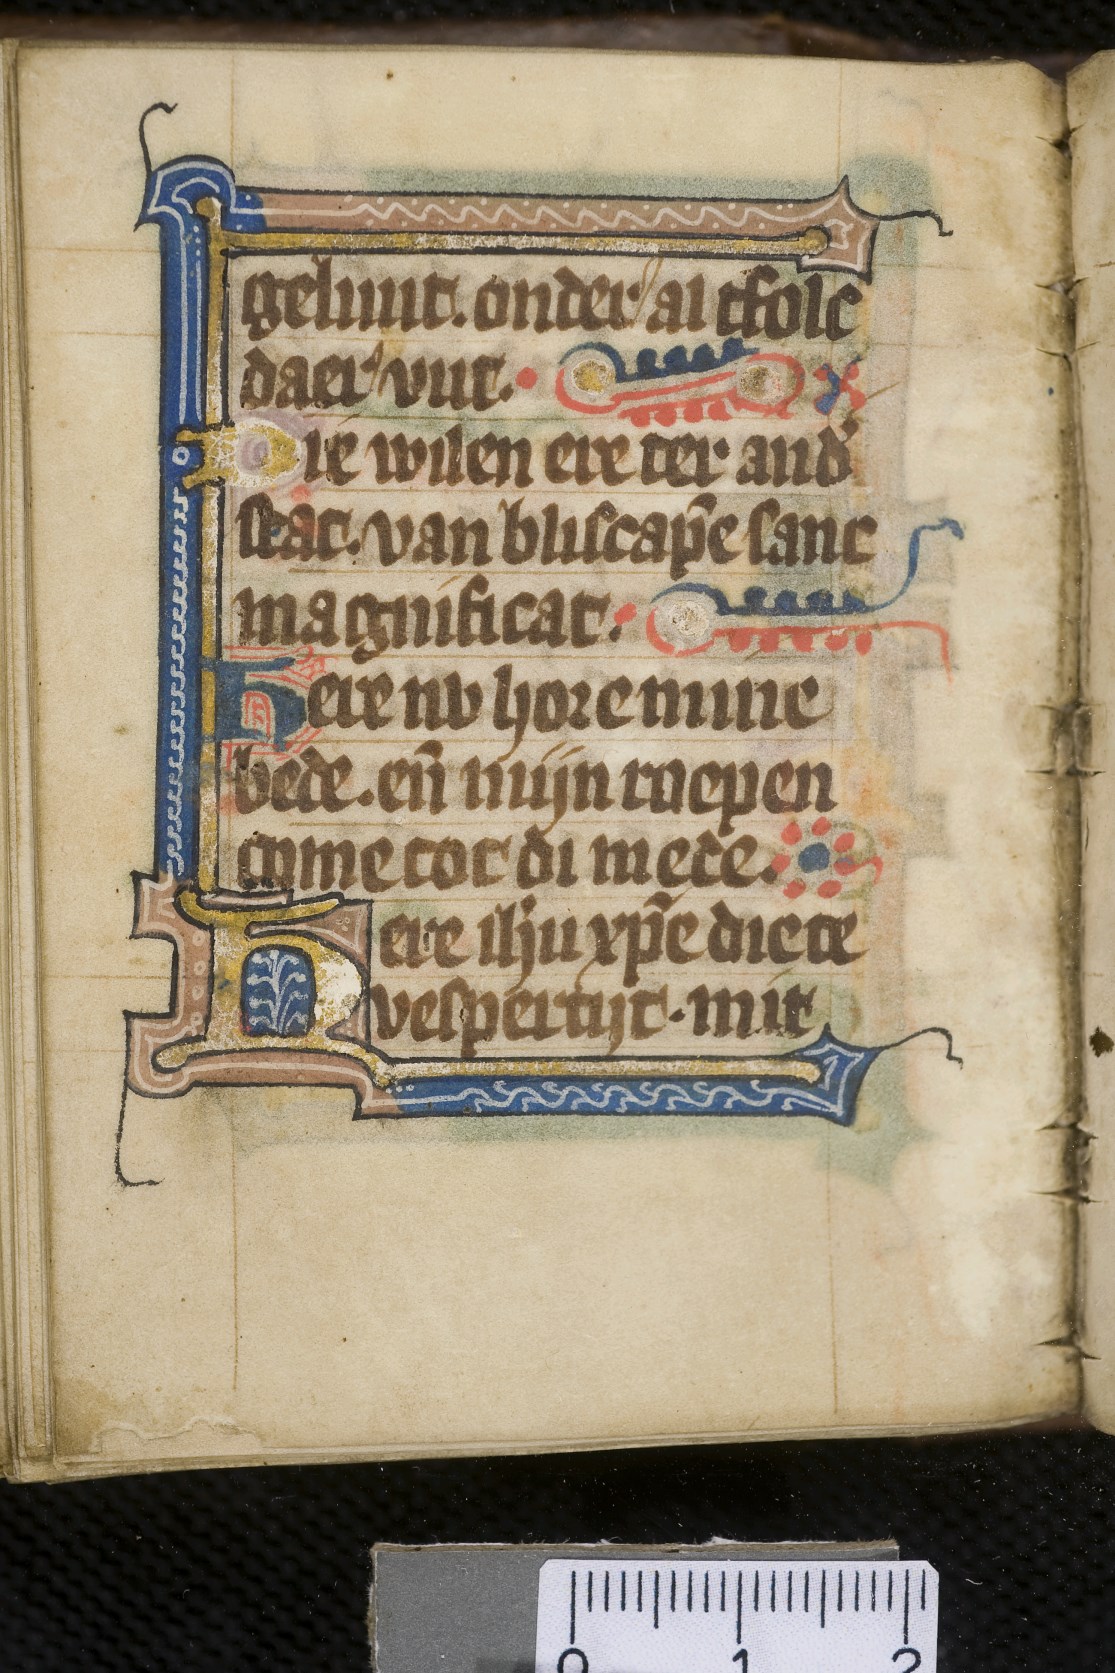 geluut. onder al tfolc
daer uut.
Die wilen ere ter and̕
stat. van bliscap̄e sanc
magnificat.
Here nv hore mine
bede. en̄ mijn roepen
come tot di mede.
Here ih̄u xp̄e diete
vespertijt. mit
0 1 2